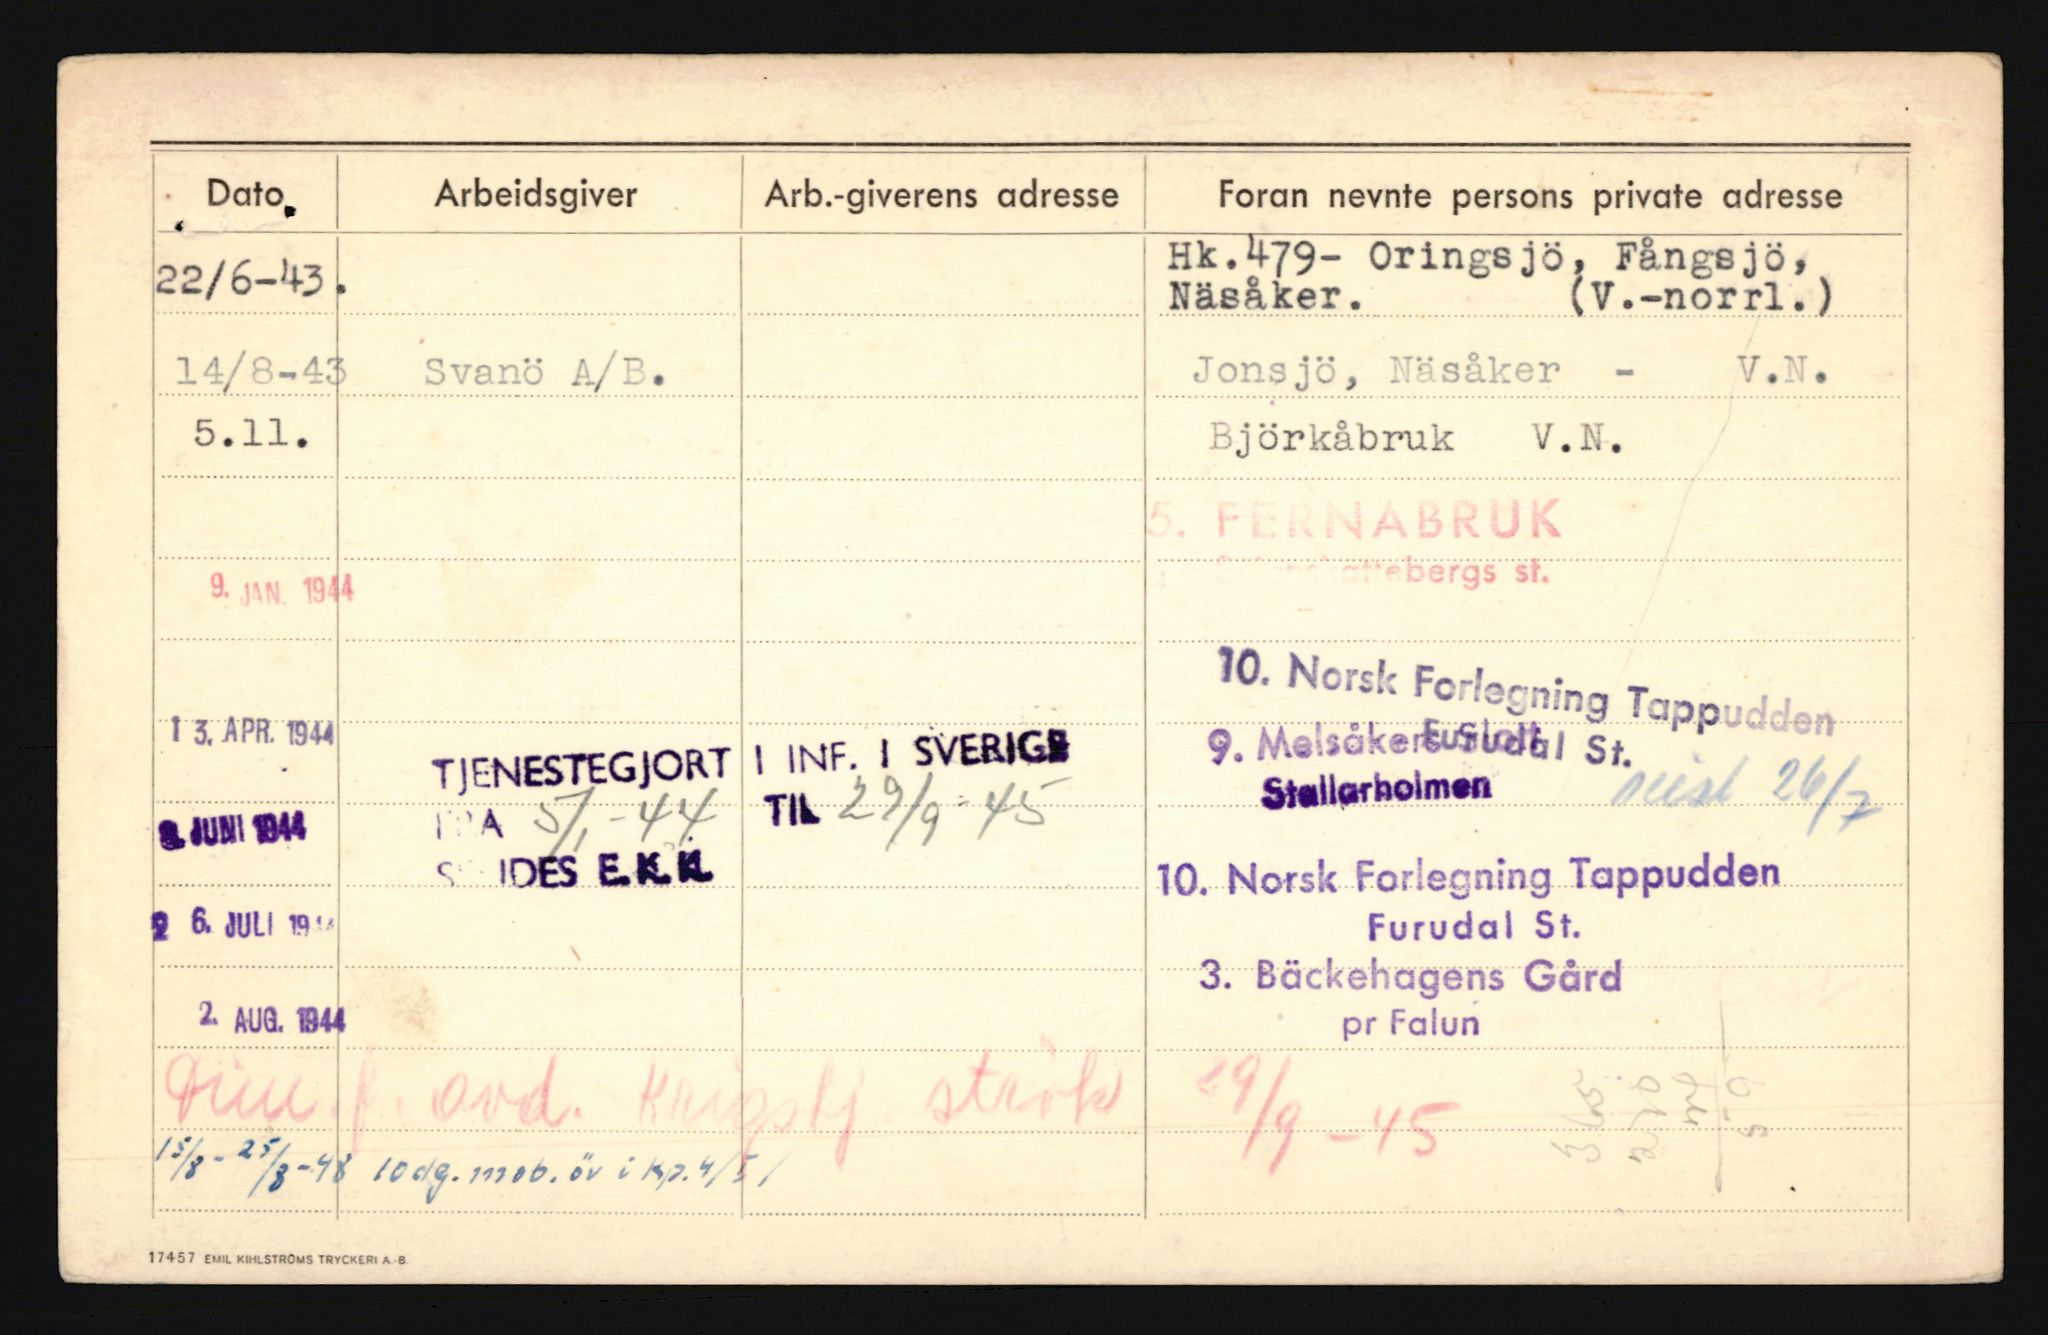 Dato. Arbeidsgiver Arb.-giverens adresse Foran nevnte persons private adresse
22/6-43. Hk.479- Oringsjö, Fångsjö,
Näsåker. (V.-norrl.)
14/8-43 Svanö A/B. Jonsjö, Näsåker - V.N.
5.11. Björkåbruk V.N.
5. FERNABRUK
9. JAN. 1944 st.
10. Norsk Forlegning Tappudden
Furudal St.
13. APR. 1944
9. Melsåkers Slott
Stallarholmen
reist 26/7
TJENESTEGJORT I INF. I SVERIGE
FRA 5/1-44 TIL 29/9-45
E.K.K.
JUNI 1944
10. Norsk Forlegning Tappudden
26. JULI Furudal St.
3. Bäckehagens Gård
2. AUG. 1944 pr Falun
Dim. f. avd. 29/9-45
15/8-25/8-48 10 dg. mob. öv i Kp. 4/51
17457 EMIL KIHLSTRÖMS TRYCKERI A.-B.